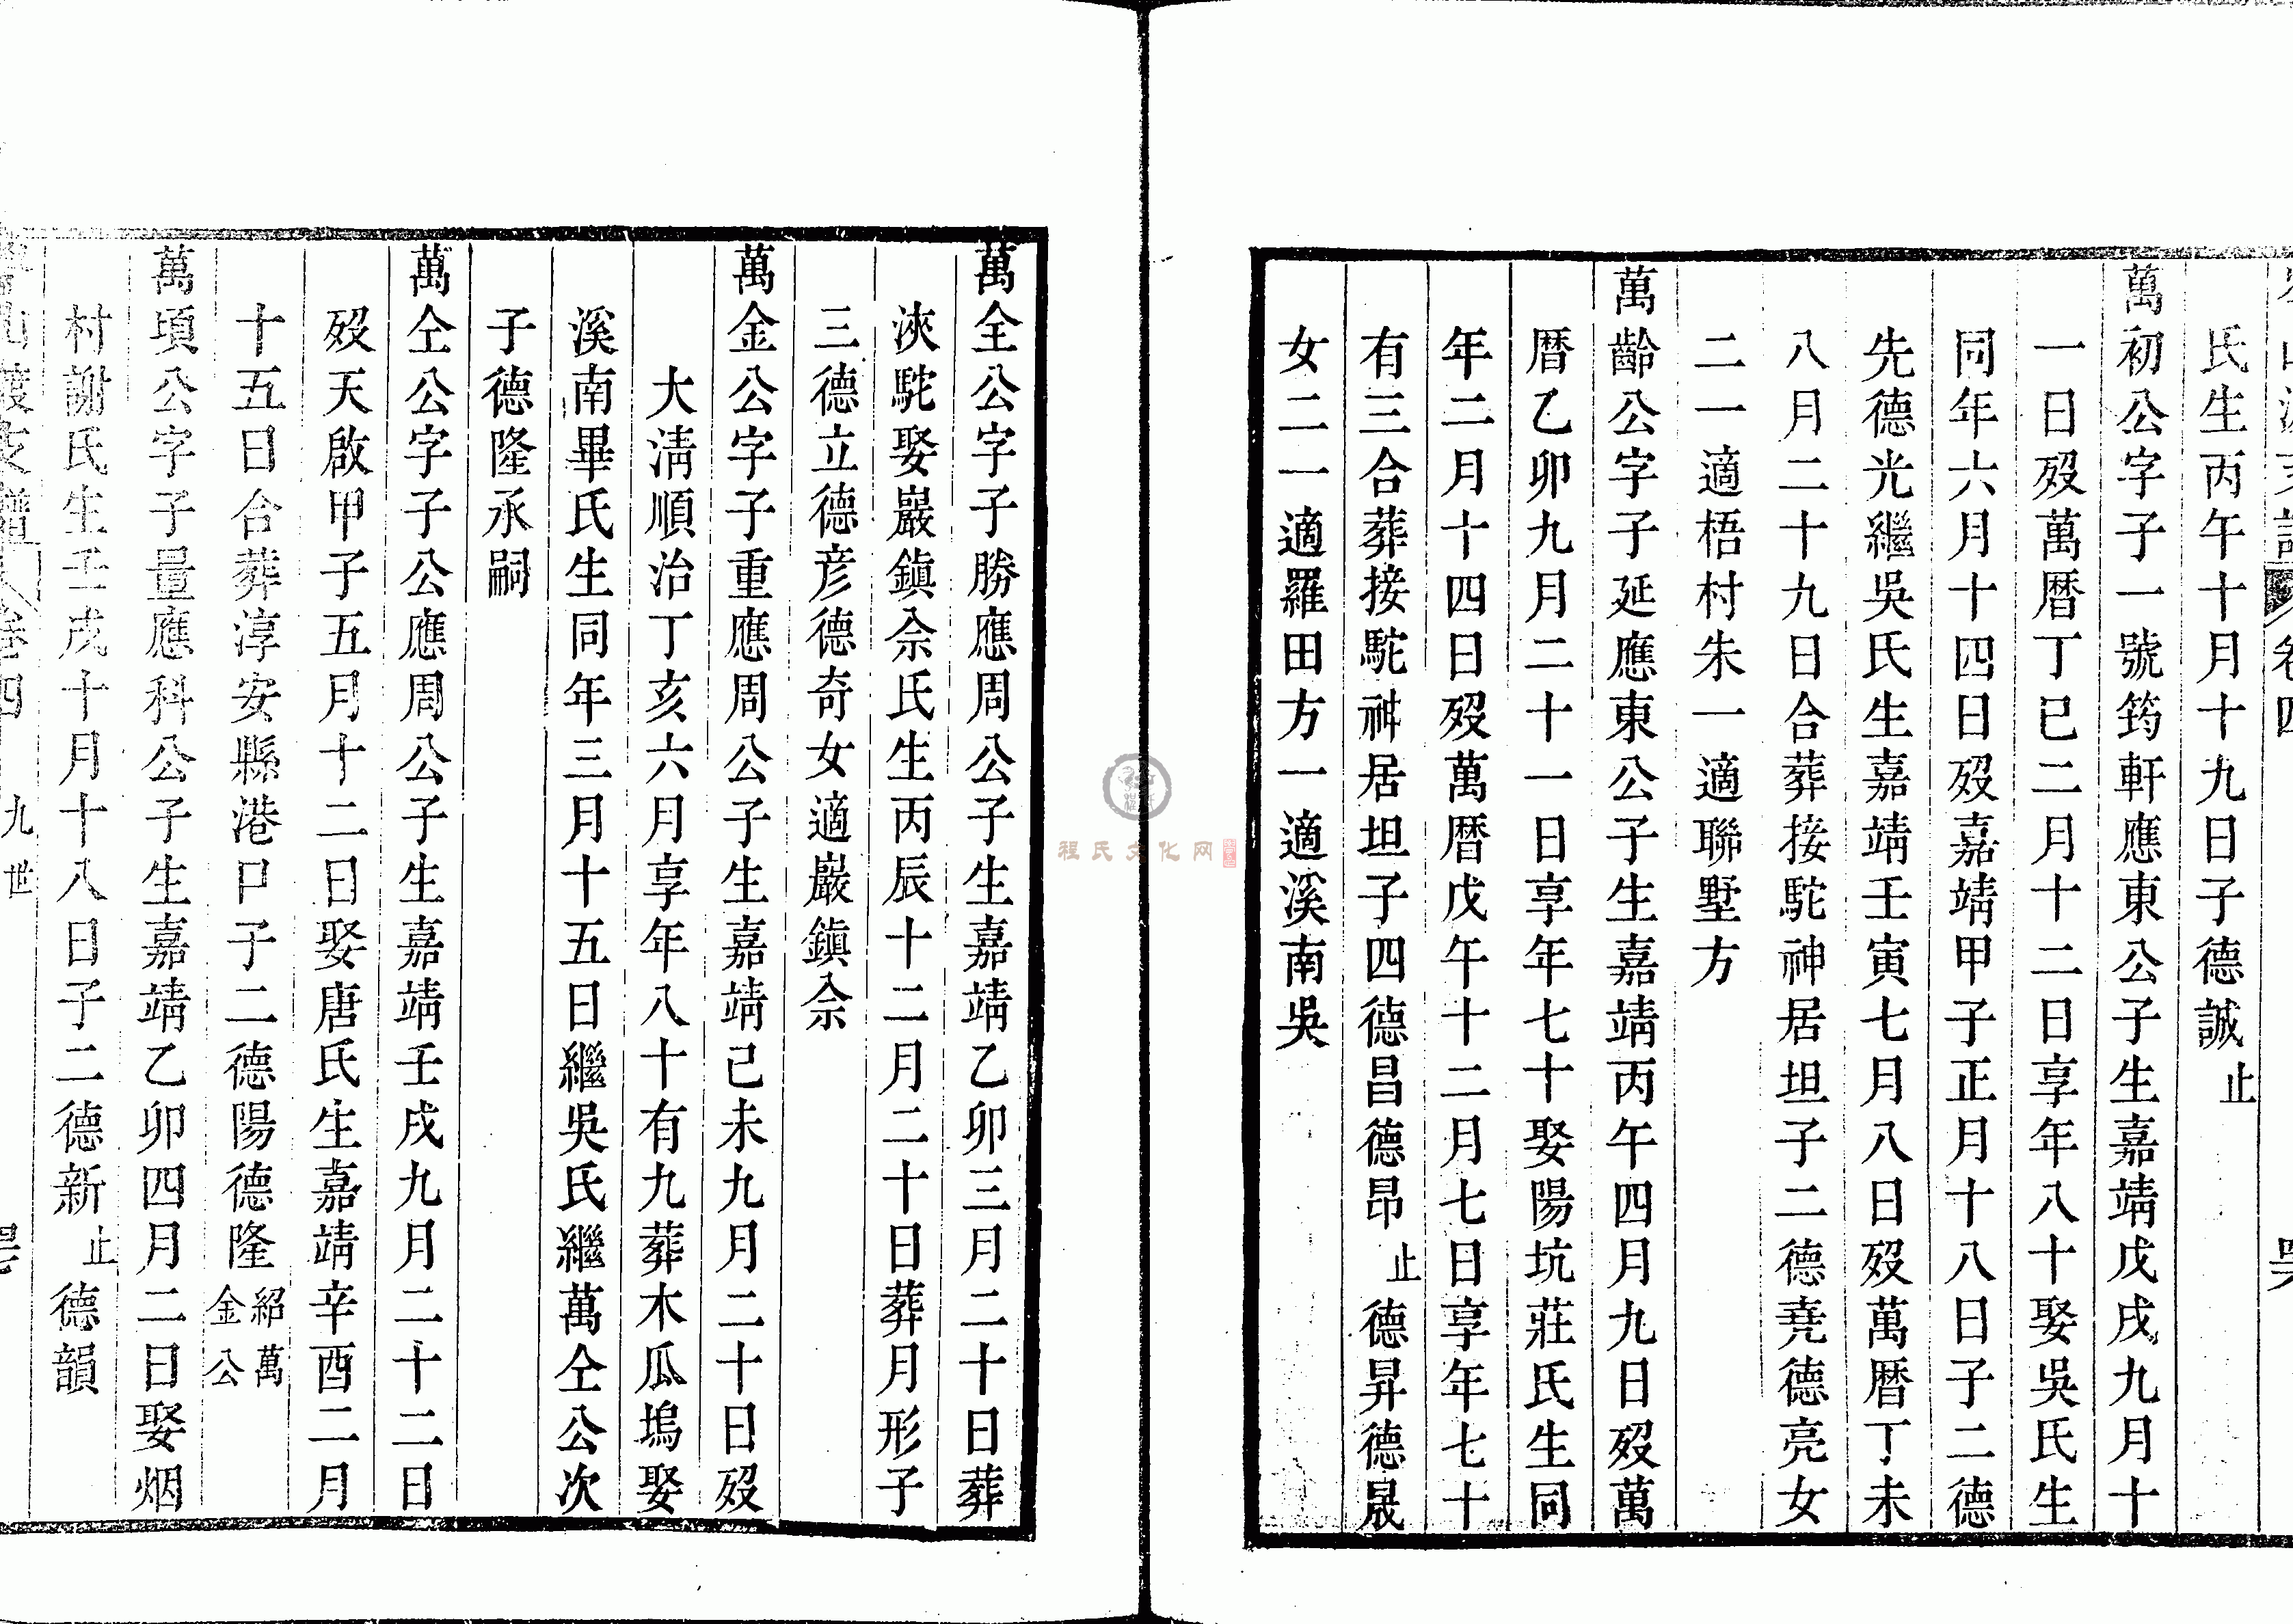 氏生丙午十月十九日子德誠止
萬初公字子一號筠軒應東公子生嘉靖戊戌九月十
一日歿萬曆丁巳二月十二日享年八十娶吳氏生
同年六月十四日歿嘉靖甲子正月十八日子二德
先德光繼吳氏生嘉靖壬寅七月八日歿萬曆丁未
八月二十九日合葬接駝神居坦子二德堯德亮女
二一適梧村朱一適聯墅方
萬齡公字子延應東公子生嘉靖丙午四月九日歿萬
曆乙卯九月二十一日享年七十娶陽坑莊氏生同
年二月十四日歿萬曆戊午十二月七日享年七十
有三合葬接駝神居坦子四德昌德昂止德昇德晟
女二一適羅田方一適溪南吳
萬全公字子勝應周公子生嘉靖乙卯三月二十日葬
浹駝娶巖鎮佘氏生丙辰十二月二十日葬月形子
三德立德彦德奇女適巖鎮佘
萬金公字子重應周公子生嘉靖己未九月二十日歿
大清順治丁亥六月享年八十有九葬木瓜塢娶
溪南畢氏生同年三月十五日繼吳氏繼萬仝公次
子德隆承嗣
萬仝公字子公應周公子生嘉靖壬戌九月二十二日
歿天啟甲子五月十二日娶唐氏生嘉靖辛酉二月
十五日合葬淳安縣港口子二德陽德隆紹萬金公
萬頃公字子量應科公子生嘉靖乙卯四月二日娶烟
村謝氏生壬戌十月十八日子二德新止德韻
卷四 九世
程氏文化网